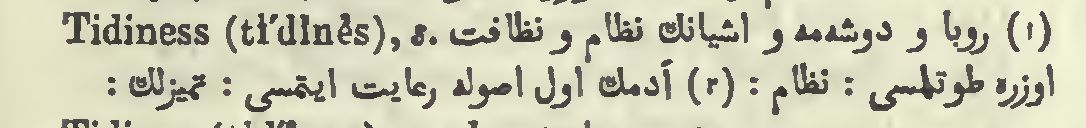 Tidiness (tī′dĭnĕs), s. (١) روبا و دوشه‌مه و اشیانك نظام و نظافت
اوزره طوتلمسی : نظام : (٢) آدمك اول اصوله رعایت ایتمسی : تمیزلك :